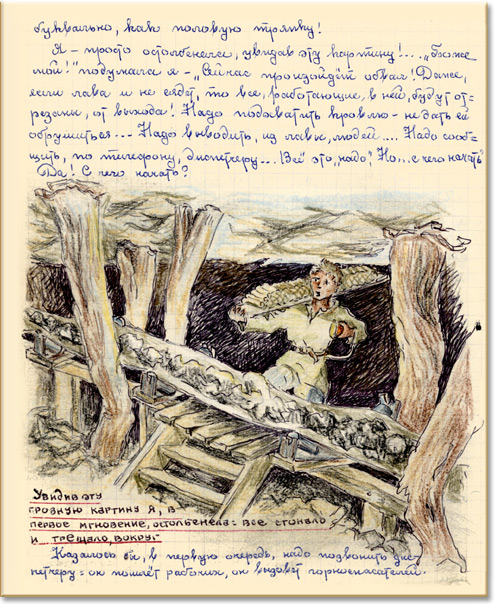 буквально, как половую тряпку!
Я - просто остолбенела, увидав эту картину!... „Боже
мой!" подумала я -, „Сейчас произойдёт обвал! Далее,
если лава и не сядет, то все, работающие, в ней, будут от-
резаны, от выхода! Надо подхватить кровлю - не дать ей
обрушиться... Надо выводить, из лавы, людей.... Надо сооб-
щить, по телефону, диспетчеру... Всё это, „надо". Но... с чего начать?
Да! С чего начать?
Увидив эту
грозную картину я, в
первое мгновение, остолбенела: все стонало
и трещало, вокруг.
Казалось бы, в первую очередь, надо позвонить дис-
петчеру: он пошлёт рабочих, он вызовет горноспасателей.